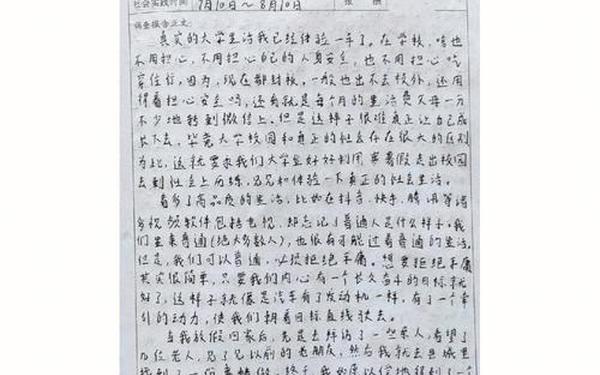 社会实践时间 7月10日～8月10日
调查报告正文:
真实的大学生活我已经体验一年了。在学校,啥也
不用担心,不用担心自己的人身安全,也不用担心吃
穿住行,因为,现在都封校,一般也出不去校外,还用
得着担心安全吗,还有就是每个月的生活费父母一分
不少地转到微信上。但是这样子很难真正让自己成
长下去,毕竟大学校园和真正的社会存在很大的区别
为此,这就要求我们大学生好好利用寒暑假走出校园
去到社会上历练,见见和体验一下真正的社会生活。
看多了高品质的生活,比如在抖音、快手、腾讯等诸
多视频软件包括电视,却忘记了普通人是什么样子,我
们生来普通(绝大多数人),也很有可能过着普通的生活。
但是,我们可以普通,必须拒绝平庸。想要拒绝平庸
其实很简单,只要我们内心有一个长久奋斗的目标就
好了,这样子就像是汽车有了发动机一样,有了一个牵
引的动力,使我们朝着目标直线驶去。
当我放假回家后,先是去拜访了一些亲人,看望了
几位老人,见了见以前的老朋友,然后我就去县城里